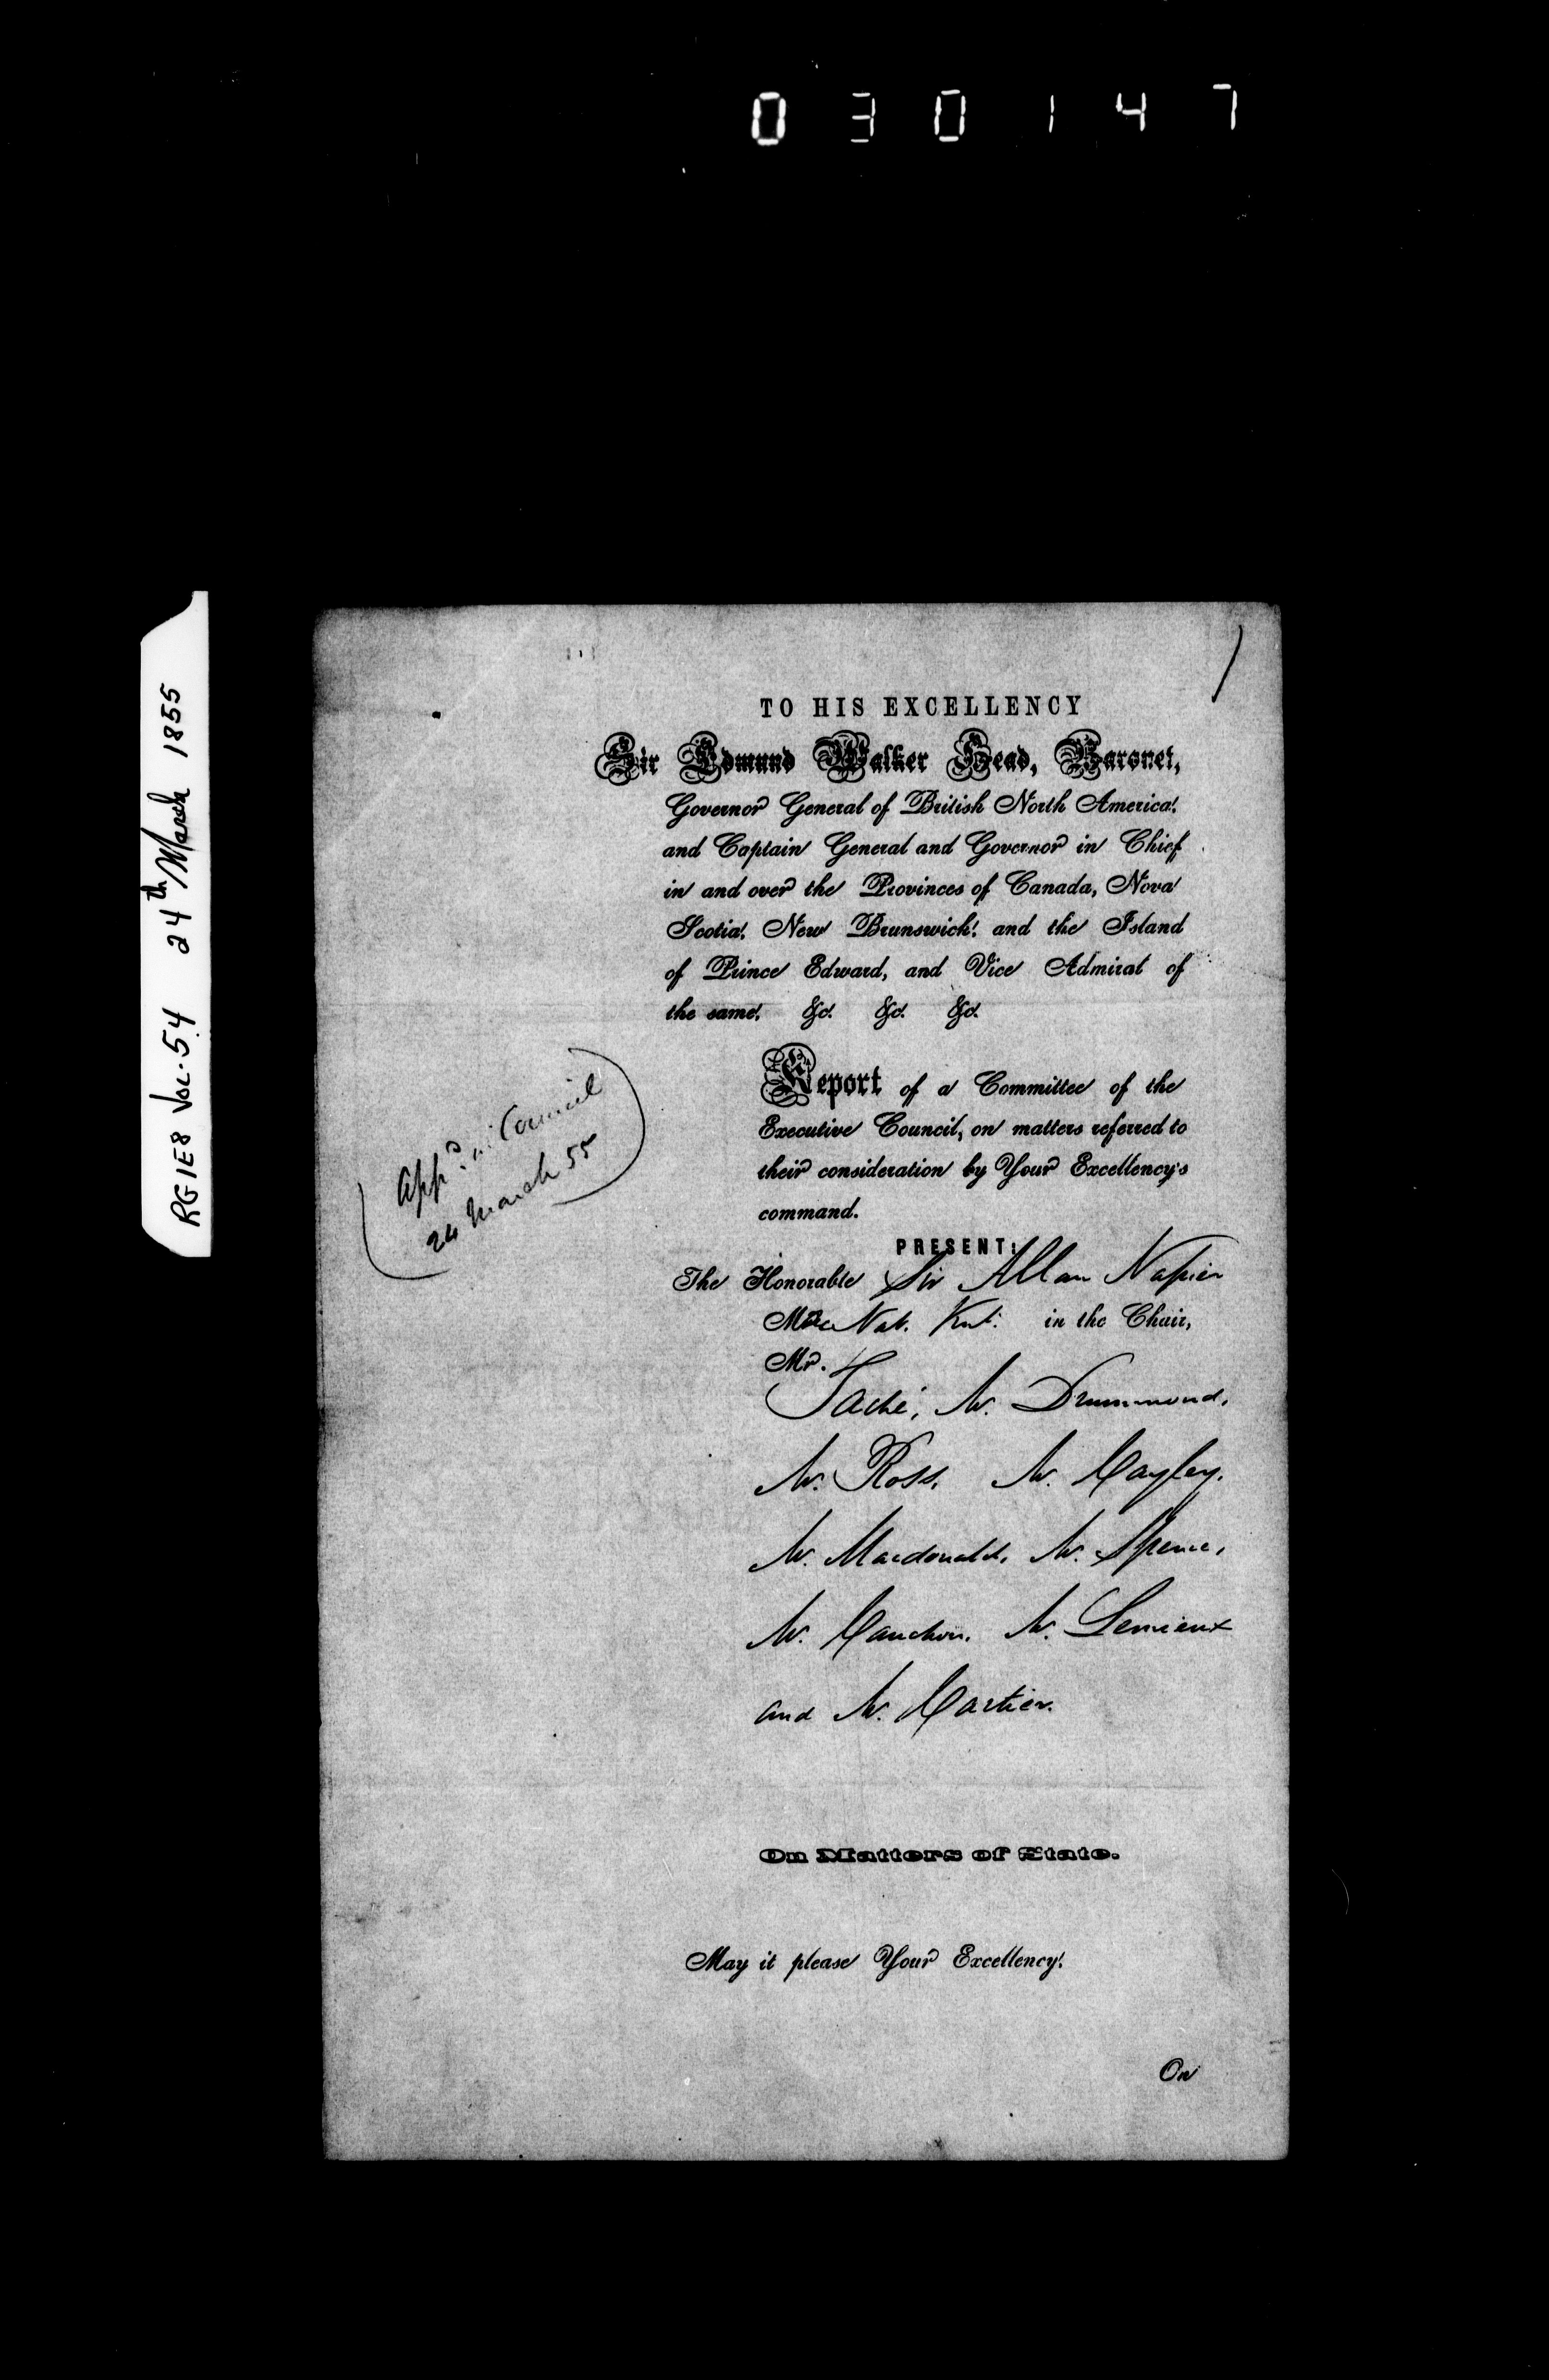 030147
RG1E8 Vol. 54 24th March 1855
/
TO HIS EXCELLENCY
Sir Edmund Walker Head, Baronet,
Governor General of British North America,
and Captain General and Governor in Chief
in and over the Provinces of Canada, Nova
Scotia, New Brunswick, and the Island
of Prince Edward, and Vice Admiral of
the same, &c. &c. &c.
Appd in Council
24 March 55
Report of a Committee of the
Executive Council, on matters referred to
their consideration by Your Excellency's
command.
PRESENT:
The Honorable Sir Allan Napier
MacNab. Knt. in the Chair,
Mr.
Taché, Mr. Drummond,
Mr. Ross, Mr. Cayley,
Mr. Macdonald, Mr. Spence,
Mr. Cauchon, Mr. Lemieux
and Mr. Cartier.
On Matters of State.
May it please Your Excellency,
On